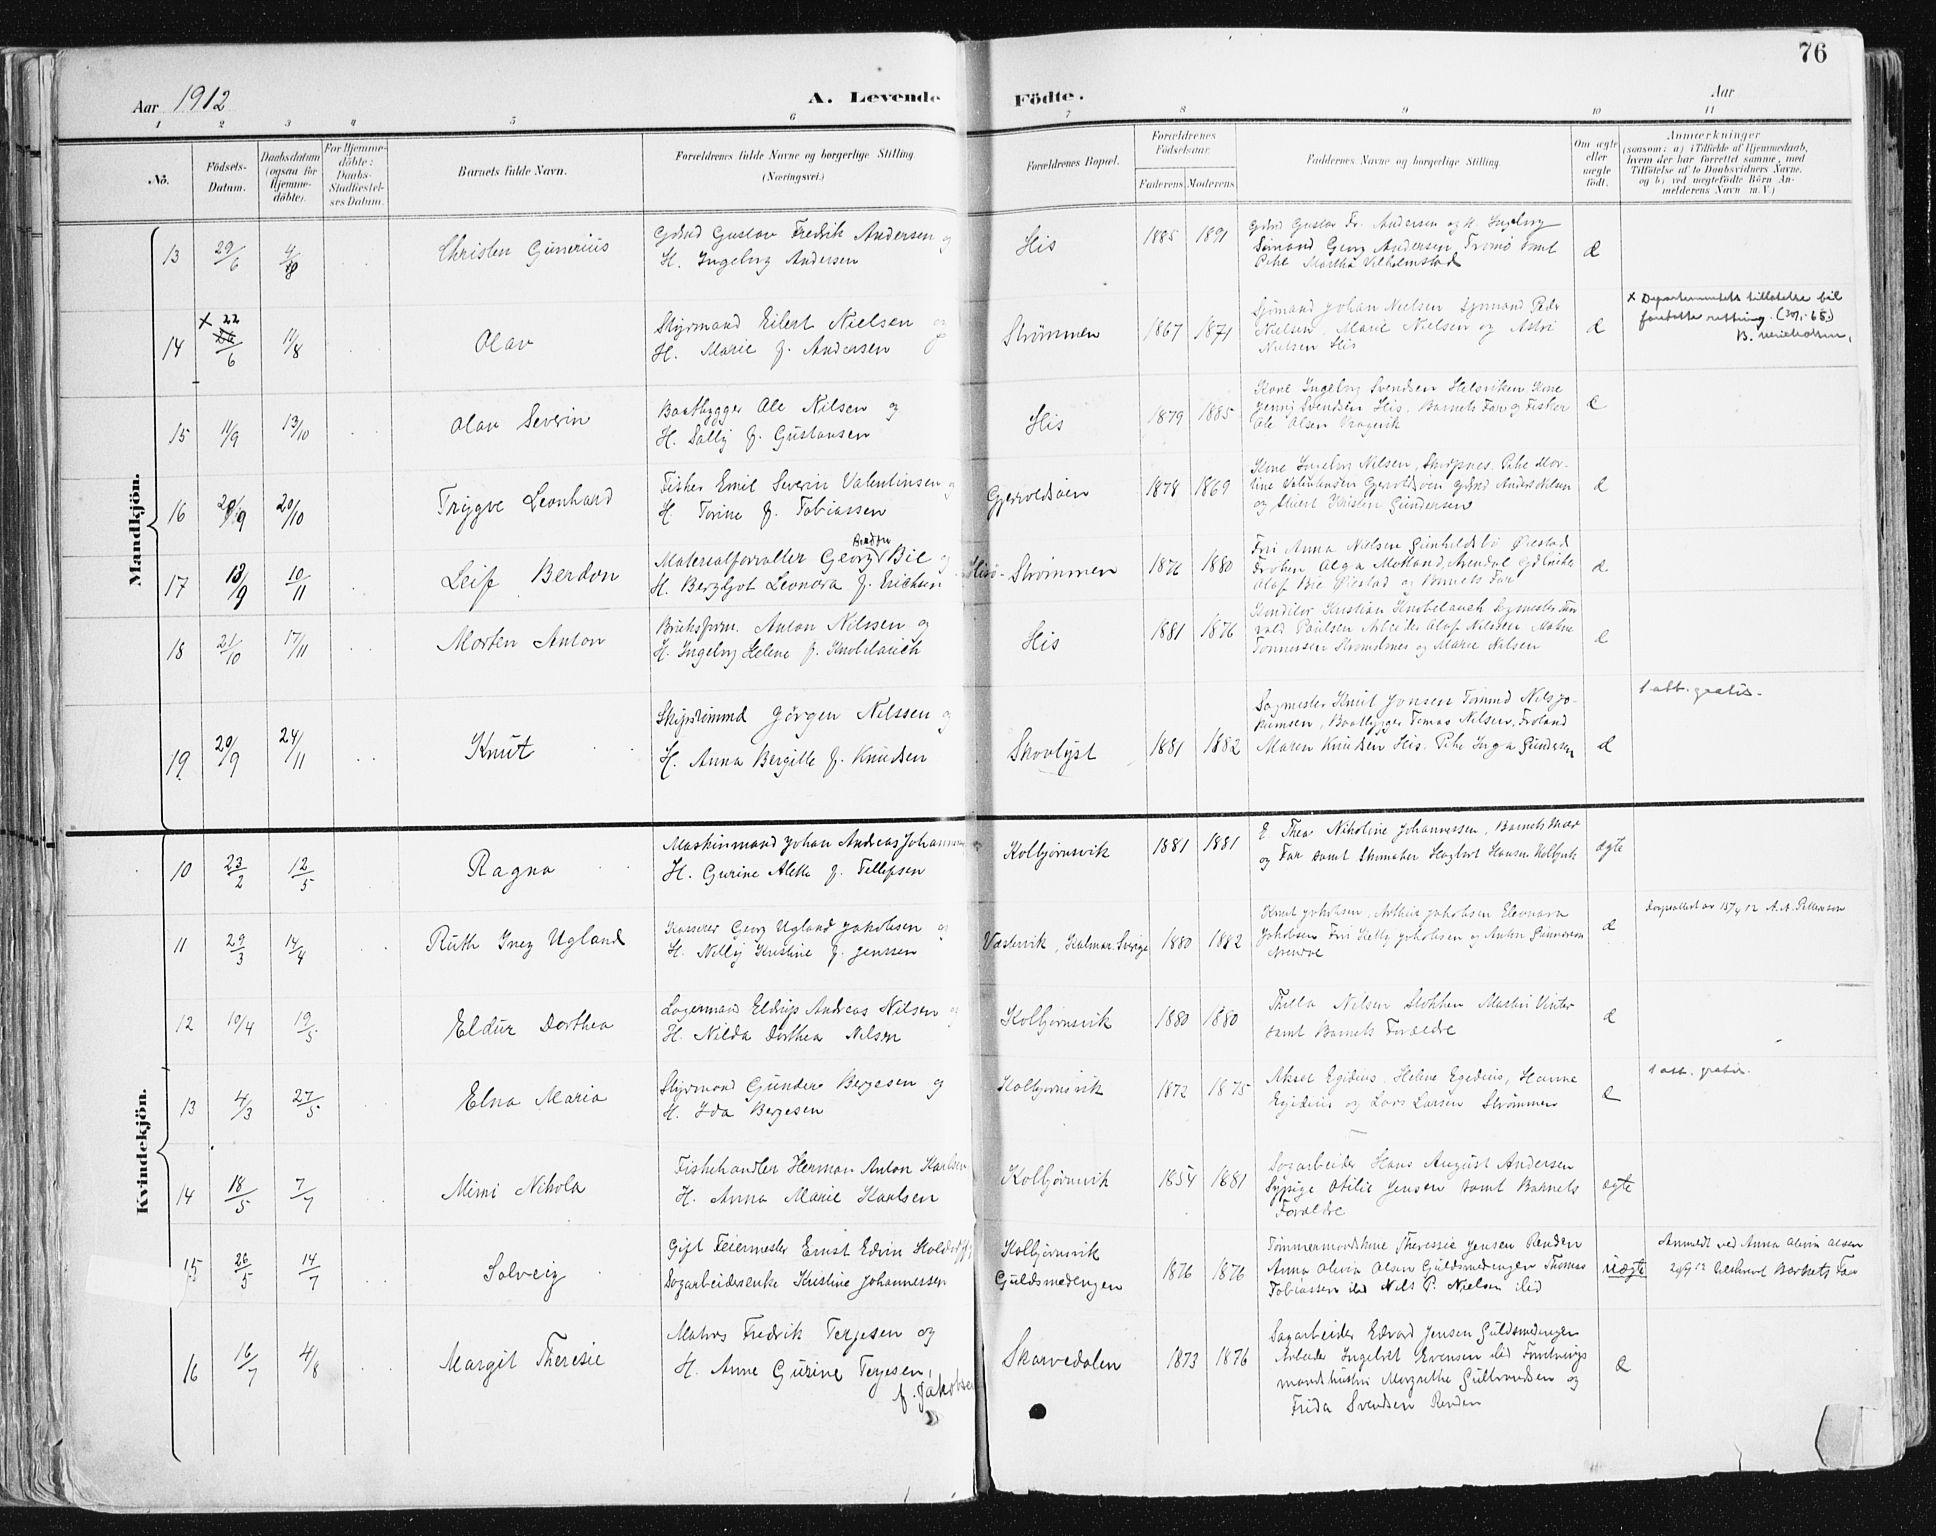 76
Aar 1912
A. Levende Födte.
Aar
1 2 3 4 5 6 7 8 9 10 11
No.
Födsels-Datum.
Daabsdatum (ogsaa for Hjemme-döbte).
For Hjemme-döbte: Daabs-Stadfæstel-ses Datum.
Barnets fulde Navn.
Forældrenes fulde Navne og borgerlige Stilling (Næringsvei.)
Forældrenes Bopæl.
Forældrenes Födselsaar.
Faderens Moderens
Faddernes Navne og borgerlige Stilling.
Om ægte eller uægte födt.
Anmærkninger
(saasom: a) i Tilfælde af Hjemmedaab, hvem der har forrettet samme, med Tilföielse af to Daabsvidners Navne. og b) ved uægtefödte Börn An-melderens Navn m. V.)
Mandkjön.
13 29/6 Christen Gunerius
Gustav Fredrik Andersen og
H. Ingeborg Andersen
His 1885 1891
Gustav Fr. Andersen og H. Ingeborg
Sömand Georg Andersen, Tromö samt
Pike Martha Vilhelmstad
Æ
14 x 22/6 11/8 Olav
Styrmand Eilert Nielsen og
H. Marie f. Andersen
Strømmen 1867 1871
Sjömand Johan Nielsen
Nielsen, Marie Nielsen og Astri
Nielsen His
Æ
x Departementets tillatelse til
foretatte rettning.
15 11/9 13/10 Olav Severin
Baatbygger Ole Nilsen og
H. Sally f. Gustavsen
His 1879 1885
Kone Ingeborg Svendsen Helsviken, Kone
Jenny Svendsen His. Barnets Far og Fisker
Ole Olsen
Æ
16 20/10 Trygve Leonhard
Fisker Emil Severin Valentinsen og
H Torine f. Tobiassen
Gjervoldsøen 1878 1869
Kone Ingeborg Nilsen, Skarpnes. Pike
Valentinsen Gjervoldsøen
og Kristen Gundersen
Æ
17 13/9 10/11 Leif Berdon
Materialforvalter Georg Berdon Bie og
H. Bergljot Leonora f. Erichsen
Hisö-Strømmen 1876 1880
Fru Anna Nielsen Gunhildsbö Øiestad
Frøken Olga Motland, Arendal
Olaf Bie Øiestad og Barnets Far
Æ
18 21/10 17/11 Morten Anton
Bruksform. Anton Nilssen og
H. Ingeborg Helene f. Knobelauch
His 1881 1876
Konditor Kristian Knobelauch Sagmester
Paulsen Arbeider Olaf Nilssen
Tønnessen Strømsbnes og Marie Nilsen
Æ
19 29/9 24/11 Knut
Skipstömmd Jörgen Nilssen og
H. Anna Bergitte f. Knudsen
Skovlyst 1881 1882
Sagmester Knut Jonsen
Baatbygger Tomas Nilsen, Froland
Maren Knudsen His. Pike Inga Gundersen
Æ
1 att. gratis.
Kvindekjön.
10 23/2 12/5 Ragna
Maskinmand Johan Andreas Johannessen
H. Gurine Alette f. Tellefsen
Kolbjørnsvik 1881 1881
E Thea Nikoline Johannessen, Barnets Mor
og Far samt Skomaker Hagbart Hansen Kolbjvik
ægte
11 29/3 14/4 Ruth Inez Ugland
Kasserer Georg Ugland Jakobsen og
H. Nelly Kristine f. Jenssen
Vestervik, Kalmar. Sverige 1880 1882
Knut Jakobsen, Arthur Jakobsen Eleonora
Jakobsen Fru Kelly Jakobsen og Anton Gunnarson
Arendal
Æ
12 19/4 19/5 Eldur Dorthea
Lagermand Eldrup Andreas Nilsen og
H. Nilda Dorthea Nilsen
Kolbjørnsvik 1880 1880
Thilla Nilsen Stokken Martin Vinter
samt Barnets Forældre
Æ
13 4/3 27/5 Elna Maria
Styrmand Gunder Bergesen og
H. Ida Bergesen
Kolbjørnsvik 1872 1875
Aksel Egidius, Helene Egidius, Hanne
Egidius og Lars Larsen Strømmen
Æ
1 att. gratis.
14 18/5 7/7 Mimi Nikola
Fiskehandler Herman Anton Karlsen
H. Anna Marie Karlsen
Kolbjørnsvik 1854 1881
Sagarbeider Hans August Andersen
Sypige Otilie Jensen samt Barnets
Forældre
ægte
15 26/5 14/7 Solveig
Gift Feiermester Ernst Edvin
Sagarbeiderenke Kristine Johannessen
Kolbjørnsvik
Guldsmedengen 1876 1876
Tømmermandskone Theressie Jensen Renden
Anna Olivia Olsen Guldsmedengen Thomas
Tobiassen ibid Nels P. Nielsen ibid
uægte
Anmeldt ved Anna Olivia Olsen
Barnets Far
16 16/7 4/8 Margit Theresie
Matros Fredrik Terjesen og
H. Anne Gurine Terjesen,
f. Jakobsen
Skarvedalen 1873 1876
Sagarbeider Edvard Jensen Guldsmedengen
Arbeider Ingebret Evensen ibid
Margrethe Gulbrandsen og
Frida Svendsen Renden
Æ